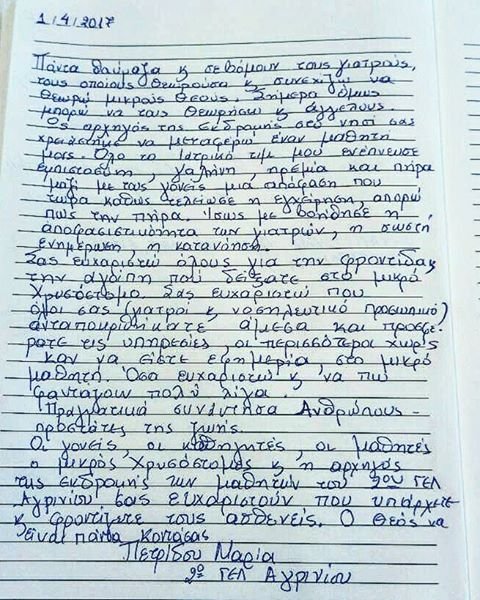 1/4/2017
Πάντα θαύμαζα & σεβόμουν τους γιατρούς,
τους οποίους θεωρούσα & συνεχίζω να
θεωρώ μικρούς θεούς. Σήμερα όμως
μπορώ να τους θεωρήσω & αγγέλους.
Ως αρχηγός της εκδρομής στο νησί σας
χρειάστηκε να μεταφέρω έναν μαθητή
μας. Όλο το ιατρικό τιμ μου ενέπνευσε
εμπιστοσύνη, γαλήνη, ηρεμία και πήρα
μαζί με τους γονείς μια απόφαση που
τώρα καθώς τελείωσε η εγχείρηση, απορώ
πως την πήρα. Ίσως με βοήθησε η
αποφασιστικότητα των γιατρών, η σωστή
ενημέρωση, η κατανόηση.
Σας ευχαριστώ όλους για την φροντίδα &
την αγάπη που δείξατε στο μικρό
Χρυσόστομο. Σας ευχαριστώ που
όλοι σας (γιατροί & νοσηλευτικό προσωπικό)
ανταποκριθήκατε άμεσα και προσφέ-
ρατε τις υπηρεσίες, οι περισσότεροι χωρίς
καν να είστε εφημερία, στο μικρό
μαθητή. Όσα ευχαριστώ & να πω
φαντάζουν πολύ λίγα.
Πραγματικά συνάντησα Ανθρώπους -
προστάτες της ζωής.
Οι γονείς, οι καθηγητές, οι μαθητές
ο μικρός Χρυσόστομος & η αρχηγός
της εκδρομής των μαθητών του 2ου ΓΕΛ
Αγρινίου σας ευχαριστούν που υπάρχετε
& φροντίζετε τους ασθενείς. Ο Θεός να
είναι πάντα κοντά σας
Πετρίδου Μαρία
2ο ΓΕΛ Αγρινίου